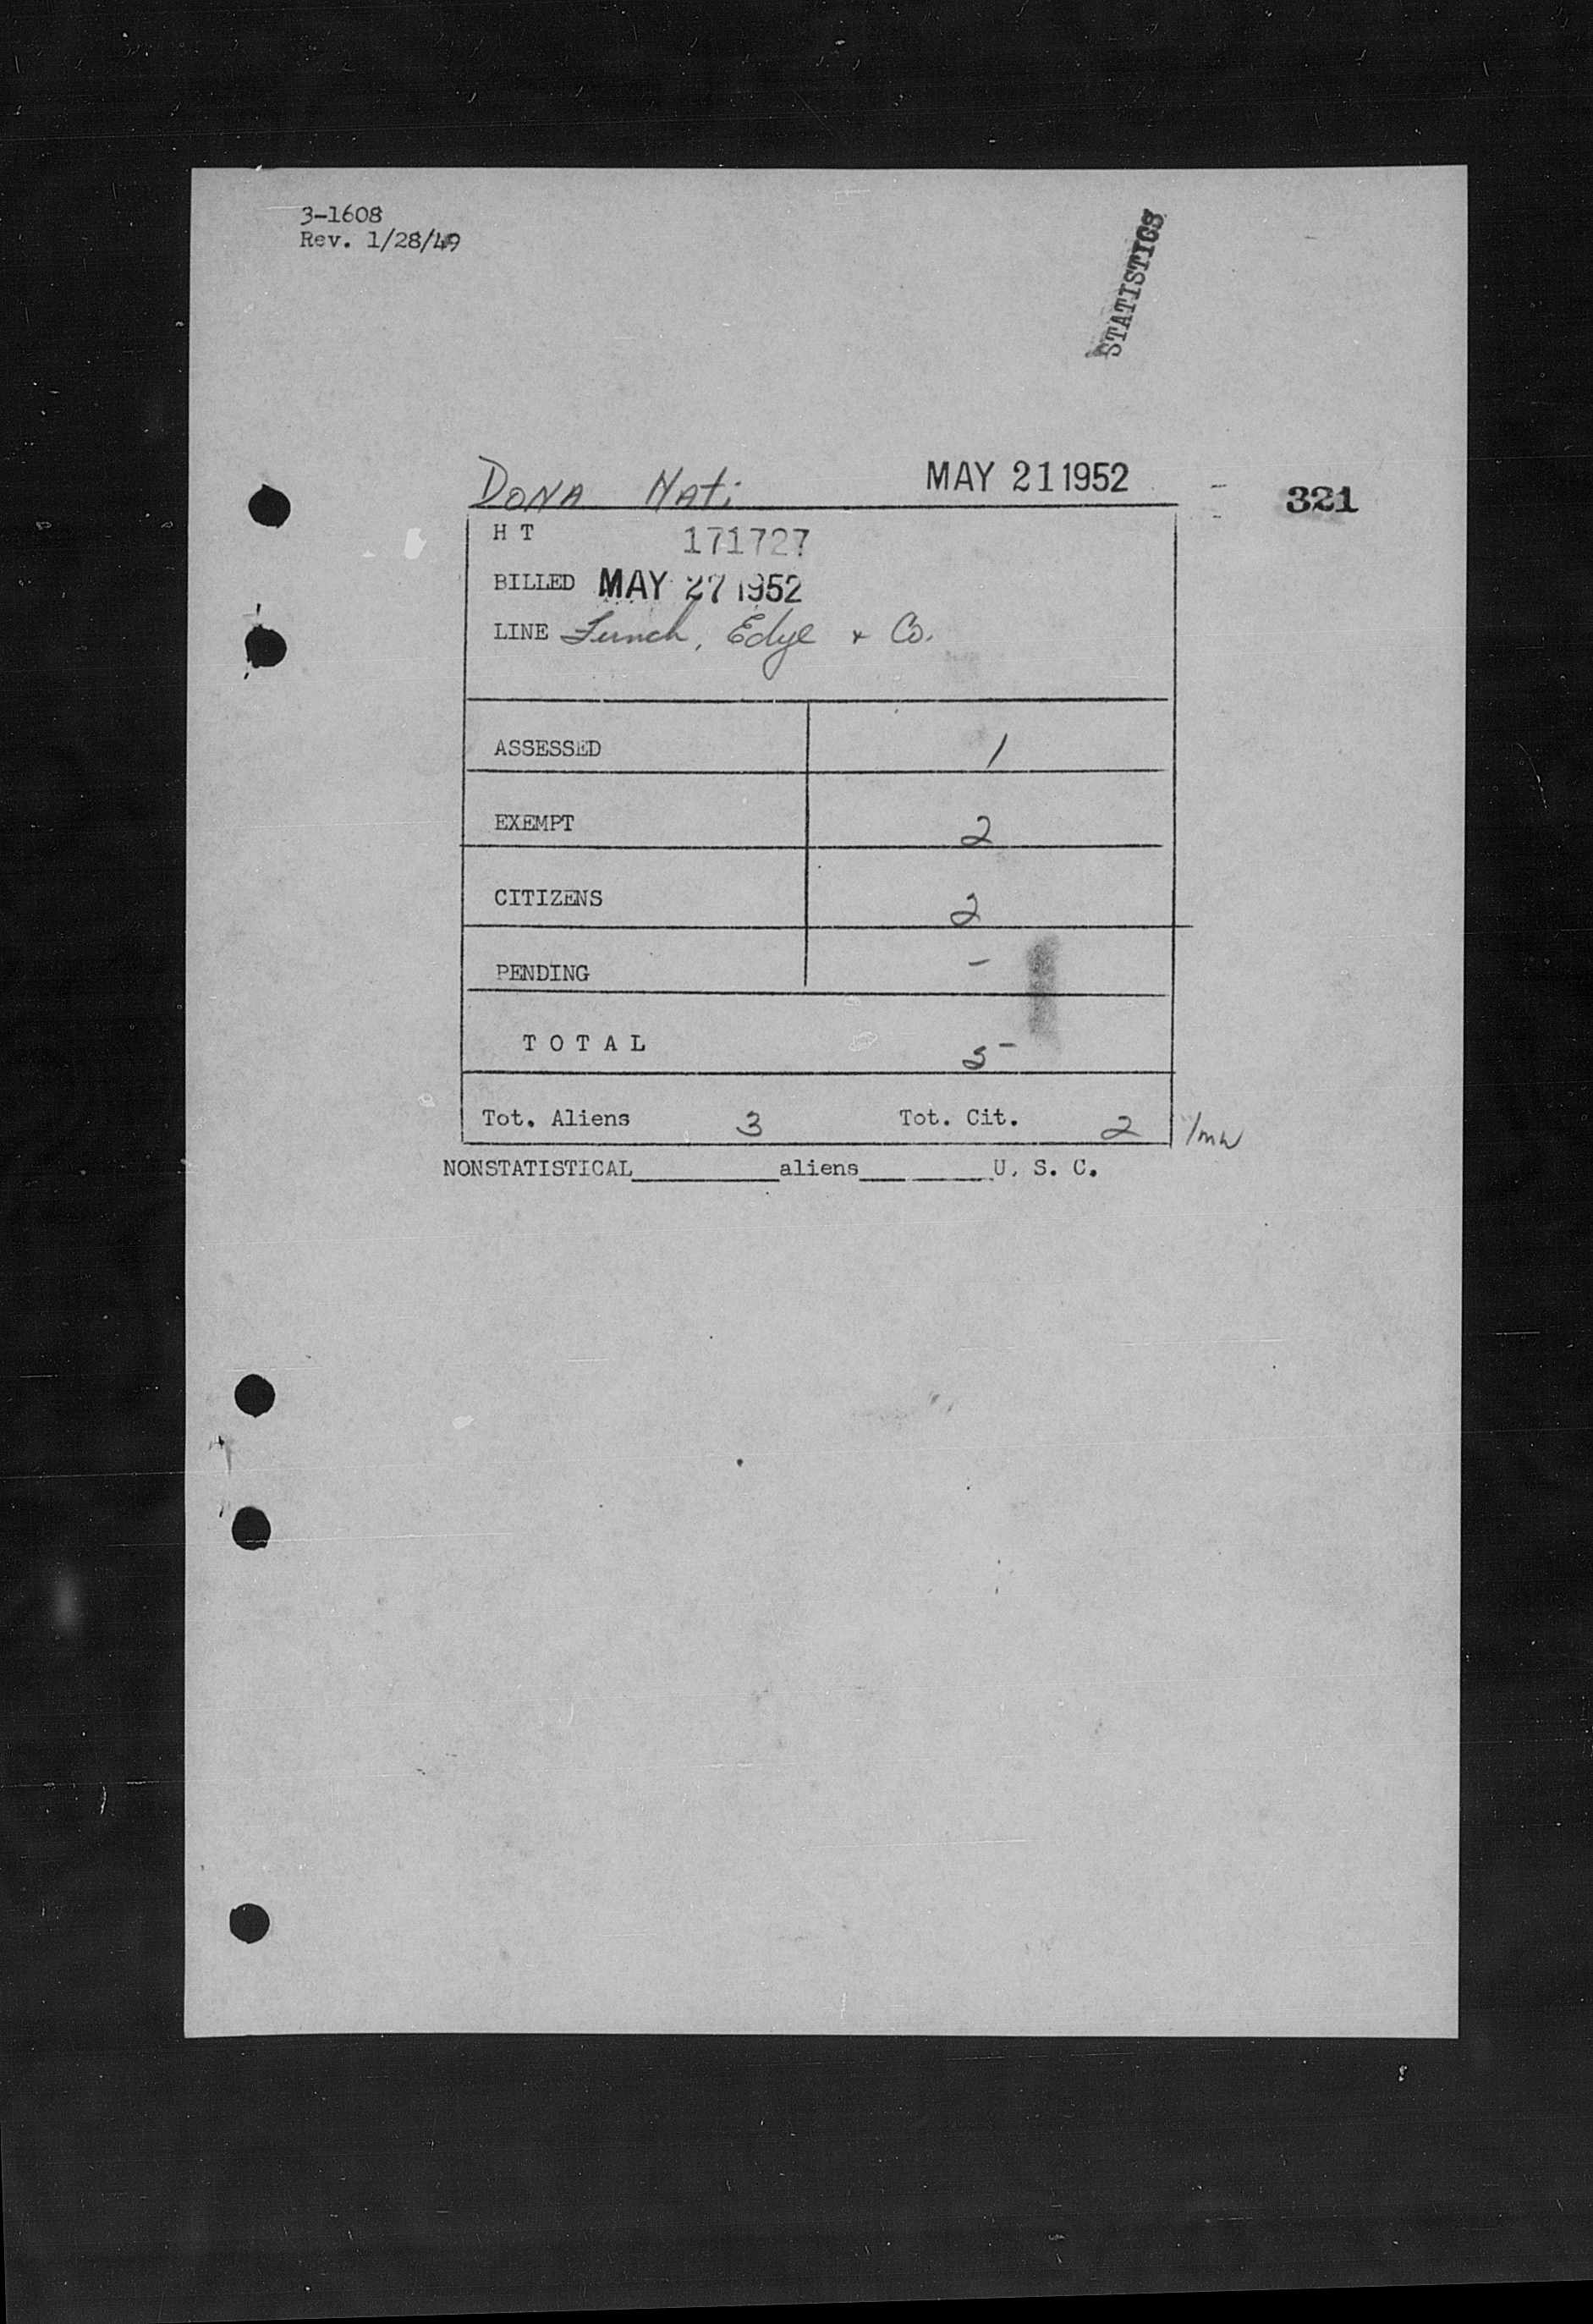 3-1608
Rev. 1/28/49
STATISTICS
DONA Nati MAY 21 1952 - 321
H T 171727
BILLED MAY 27 1952
LINE Funch, Edye & Co.
ASSESSED 1
EXEMPT 2
CITIZENS 2
PENDING -
T O T A L 5
Tot. Aliens 3 Tot. Cit. 2 /mw
NONSTATISTICAL aliens U. S. C.